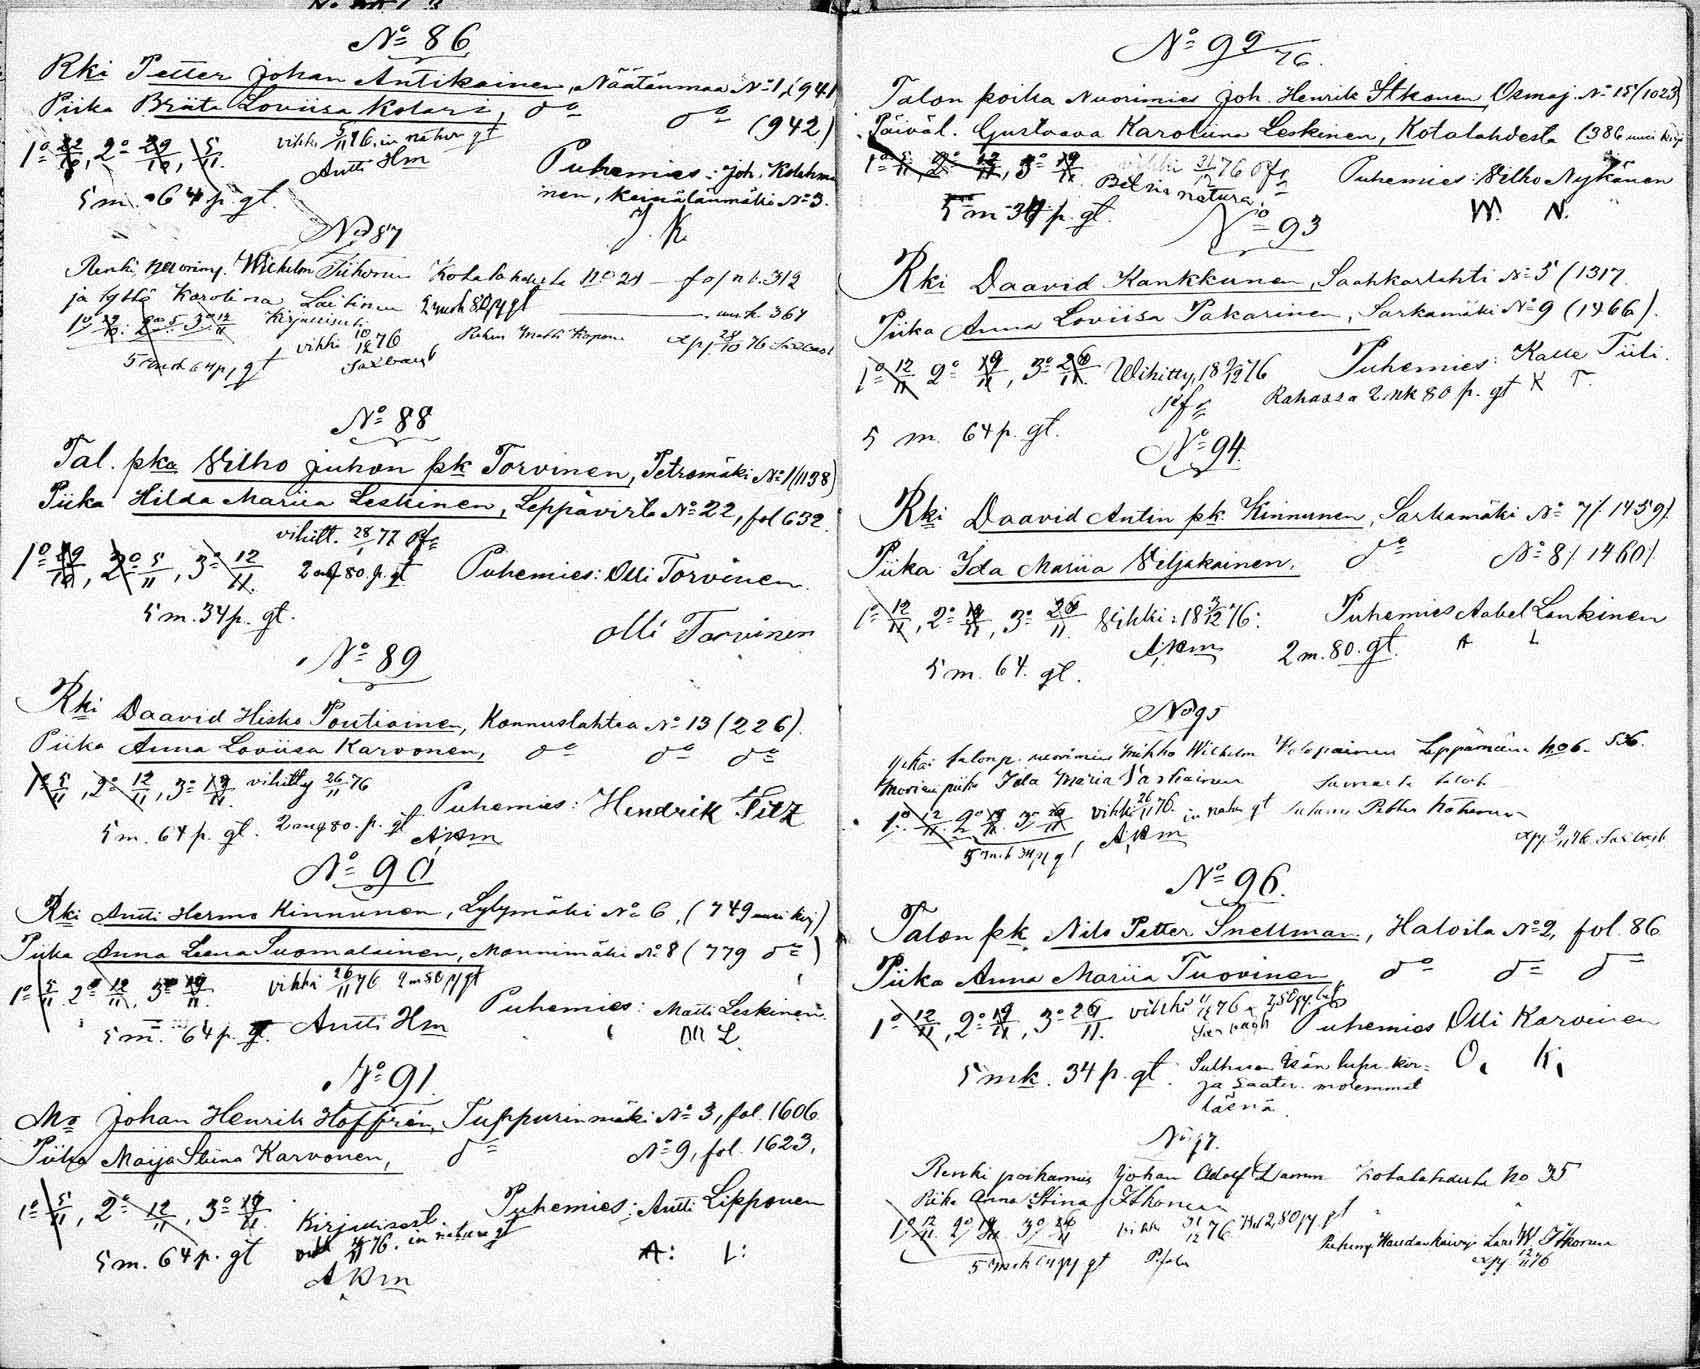 No 86
Rki Petter Johan Antikainen, Näätänmaa No 1, (941
Piika Brita Loviisa Kolari, do do (942)
1o 22/10, 2o 29/10, 5/11. vihki 5/11 76, in natur gt
Antti Hm
Puhemies: Joh. Kolehmainen, Keinälänmäki No 3.
5 m. 64 p. gt.
J. K.
No 87
Renki, nuorimj. Wilhelm Tiihonen Kotalahdesta No 21 fol n 6.312
ja tyttö Karolina Laitinen 2 mk 80 p gt uusi k. 364
1o 29/10. 2o 5 3o 12/11 Kirjallisesti
vihki 10/12 76
5 mk 64 p, gt
No 88
Tal. pka Vilho Juhon pk Torvinen, Petromäki No 1 (1138)
Piika Hilda Mariia Leskinen, Leppävirta No 22, fol 632.
vihitt. 28/1 77
1o 29/10, 2o 5/11, 3o 12/11. 2 80. p. gt Puhemies: Olli Torvinen.
5 m. 34 p. gt.
Olli Torvinen
No 89
Rki Daavid Hisko Poutiainen, Konnuslahtea No 13 (226).
Piika Anna Loviisa Karvonen, do do do
1o 5/11, 2o 12/11, 3o 19/11. vihitty 26/11 76
Puhemies: Hendrik Filz
5 m. 64 p. gt. 2 80. p. gt AHm
No 90
Rki Antti Hermo Kinnunen, Lylymäki No 6, (749 uusi kirj)
Piika Anna Leena Suomalainen, Mannimäki No 8 (779 do)
1o 5/11 2o 12/11, 3o 19/11. vihki 26/11 76 2 m 80 p gt
Puhemies: Matti Leskinen.
5 m. 64 p. gt. Antti Hm M L.
No 91.
Mo Johan Henrik Hoffrén, Tuppurinmäki No 3, fol. 1606
Piika Maija Stiina Karvonen, do No 9, fol. 1623,
1o 5/11, 2o 12/11, 3o 19/11. Puhemies: Antti Lipponen
Kirjallisesti
5 m. 64 p. gt 76. in natura gt A: L:
AHm
No 92/76.
Talon poika Nuorimies Joh. Henrik Itkonen Osmaj. No 15 (1023)
Päiväl. Gustaava Karoliina Leskinen, Kotalahdesta (386 uusi kirj
1o 5/11 2o 12/11, 3o 19/11. vihki 21/12 76
Bet. in natura. Puhemies: Vilho Nykänen
5 m 34 p. gt. W. N.
No 93
Rki Daavid Kankkunen, Saahkarlahti No 5 (1317.
Piika Anna Loviisa Pakarinen, Sarkamäki No 9 (1466).
1o 12/11 2o 19/11, 3o 26/11. Wihitty, 18 3/12 76 Puhemies: Kalle Tiili.
Rahassa 2 mk 80 p. gt K T.
5 m. 64 p. gt.
No 94.
Rki Daavid Antin pk. Kinnunen, Sarkamäki No 7 (1459).
Piika Ida Mariia Viljakainen. do No 8 (1460).
1o 12/11, 2o 19/11, 3o 26/11. Vihki: 18 3/12 76. Puhemies Aabel Lenkinen
AHm 2 m. 80. gt. A L
5 m. 64. gt.
No 95
talonp. nuorimies Mikko Wilhelm Leppämäen No 6 536.
Ida Maria Vartiainen
1o 12/11 2o 19/11 3o 26/11 vihki 26/11 76. in natur gt Petter
5 mk 34 p gt AHm
No 96.
Talon pk. Nils Petter Snellman, Haloila No 2, fol. 86
Piika Anna Mariia Tuovinen do do do
1o 12/11, 2o 19/11, 3o 26/11. vihki 76 Puhemies Olli Karvinen
5 mk. 34 p. gt. Sulhasen isän lupa kirja saatu. molemmat
läsnä.
O. K.
No 97.
Renki poikamies Johan Adolf Damm Kotalahdesta No 35
Piika Anna Stina Itkonen
1o 12/11. 2o 19/11 3o 26/11 vihki 31/12 76 2,80 p. gt
Puhemj Lars W. Itkonen
5 mk 64 p gt 12/11 76